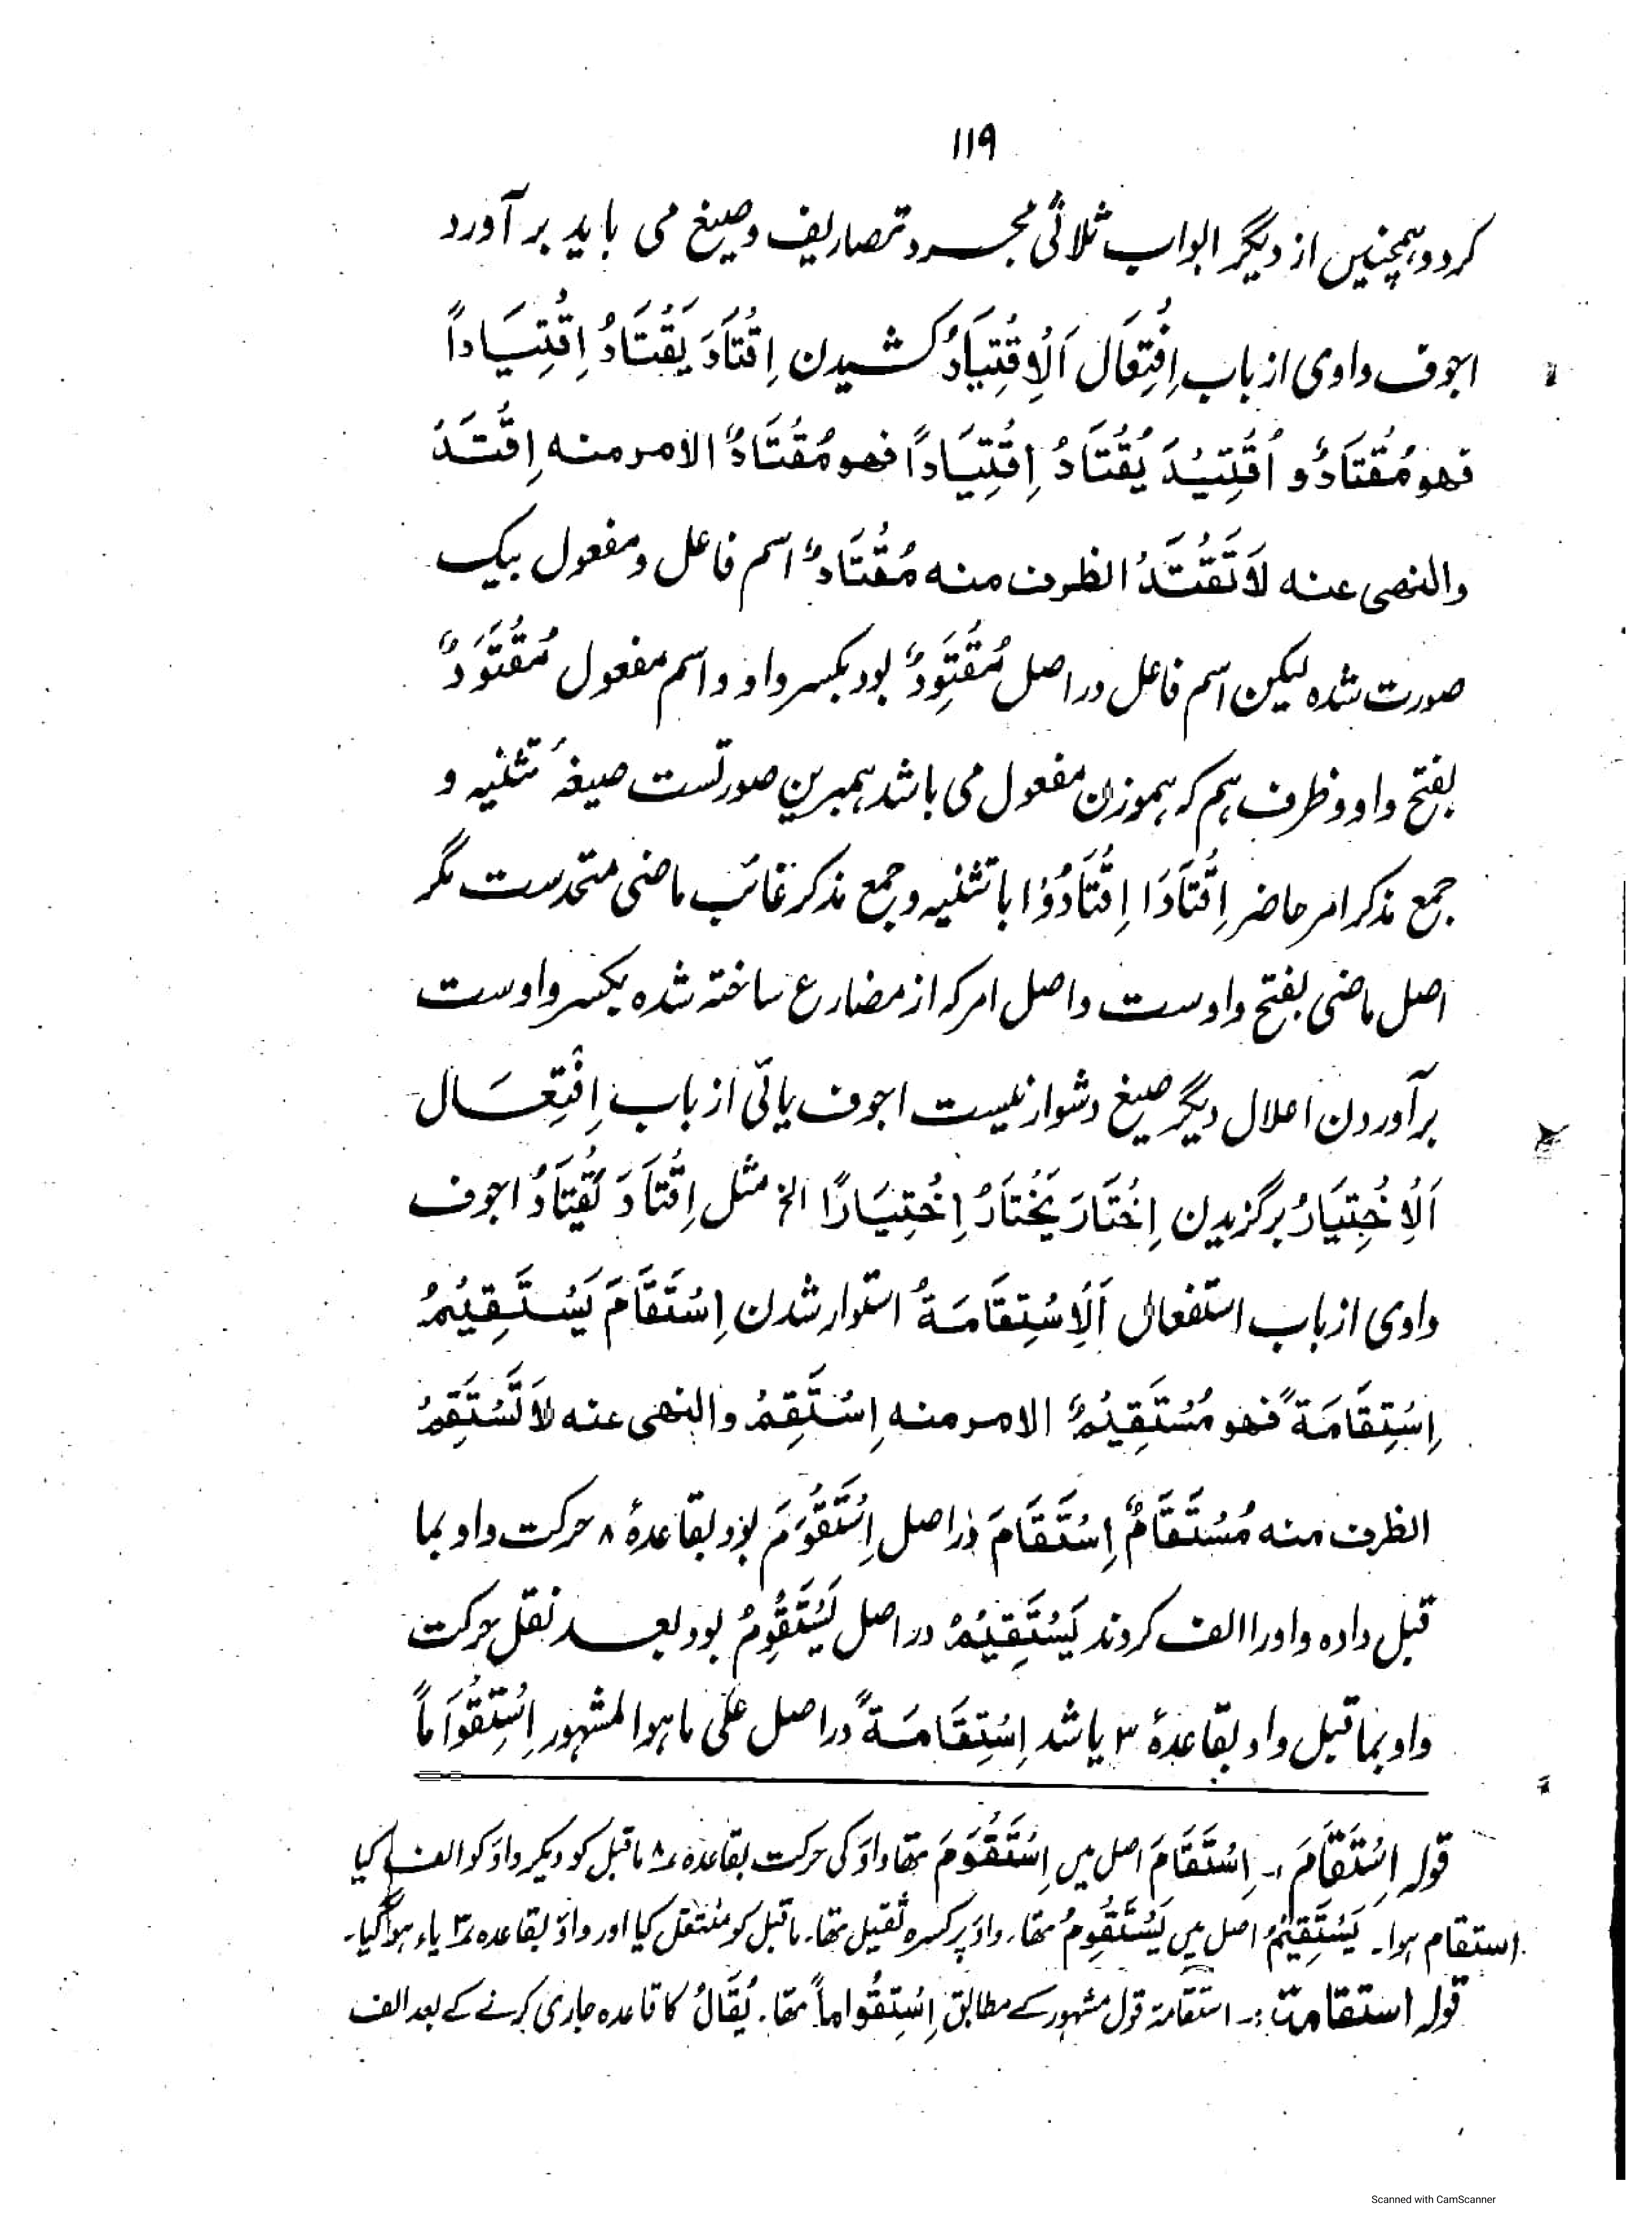 ۱۱۹
کرد و ہمچنیں از دیگر ابواب ثلاثی مجرد تصاریف و صیغ می باید بر آورد
اجوف واوی از باب اِفْتِعَال اَلْاِقْتِيَادُ کشیدن اِقْتَادَ يَقْتَادُ اِقْتِيَاداً
فهو مُقْتَادٌ و اُقْتِيْدَ يُقْتَادُ اِقْتِيَاداً فهو مُقْتَادٌ الامر منه اِقْتَدْ
والنهى عنه لَا تَقْتَدْ الظرف منه مُقْتَادٌ اسم فاعل و مفعول بیک
صورت شده لیکن اسم فاعل در اصل مُقْتَوِدٌ بود بکسر واو و اسم مفعول مُقْتَوَدٌ
بفتح واو و ظرف ہم کہ ہموزن مفعول می باشد ہمبرین صورتست صیغۂ تثنیہ و
جمع مذکر امر حاضر اِقْتَادَا اِقْتَادُوْا با تثنیہ و جمع مذکر غائب ماضی متحدست مگر
اصل ماضی بفتح واوست و اصل امر کہ از مضارع ساختہ شدہ بکسر واوست
برآوردن اعلال دیگر صیغ دشوار نیست اجوف یائی از باب اِفْتِعَال
اَلْاِخْتِيَارُ برگزیدن اِخْتَارَ يَخْتَارُ اِخْتِيَارًا الخ مثل اِقْتَادَ يَقْتَادُ اجوف
واوی از باب استفعال اَلْاِسْتِقَامَةُ استوار شدن اِسْتَقَامَ يَسْتَقِيْمُ
اِسْتِقَامَةً فهو مُسْتَقِيْمٌ الامر منه اِسْتَقِمْ والنهى عنه لَا تَسْتَقِمْ
الظرف منه مُسْتَقَامٌ اِسْتَقَامَ در اصل اِسْتَقْوَمَ بود بقاعدۂ ۸ حرکت واو بما
قبل دادہ واو را الف کردند يَسْتَقِيْمُ در اصل يَسْتَقْوِمُ بود بعد نقل حرکت
واو بما قبل واو بقاعدۂ ۳ یا شد اِسْتِقَامَةً در اصل علی ما ہو المشہور اِسْتِقْوَاماً
قولہ اِسْتَقَامَ :۔ اِسْتَقَامَ اصل میں اِسْتَقْوَمَ تھا واؤ کی حرکت بقاعدہ ۸ ماقبل کو دیکر واؤ کو الف کیا
استقام ہوا۔ يَسْتَقِيْمُ اصل میں يَسْتَقْوِمُ تھا۔ واؤ پر کسرہ ثقیل تھا۔ ماقبل کو منتقل کیا اور واؤ بقاعدہ ۳ یاء ہوگیا۔
قولہ استقامۃ :۔ استقامۃ قول مشہور کے مطابق اِسْتِقْوَاماً تھا۔ يُقَالُ کا قاعدہ جاری کرنے کے بعد الف
Scanned with CamScanner